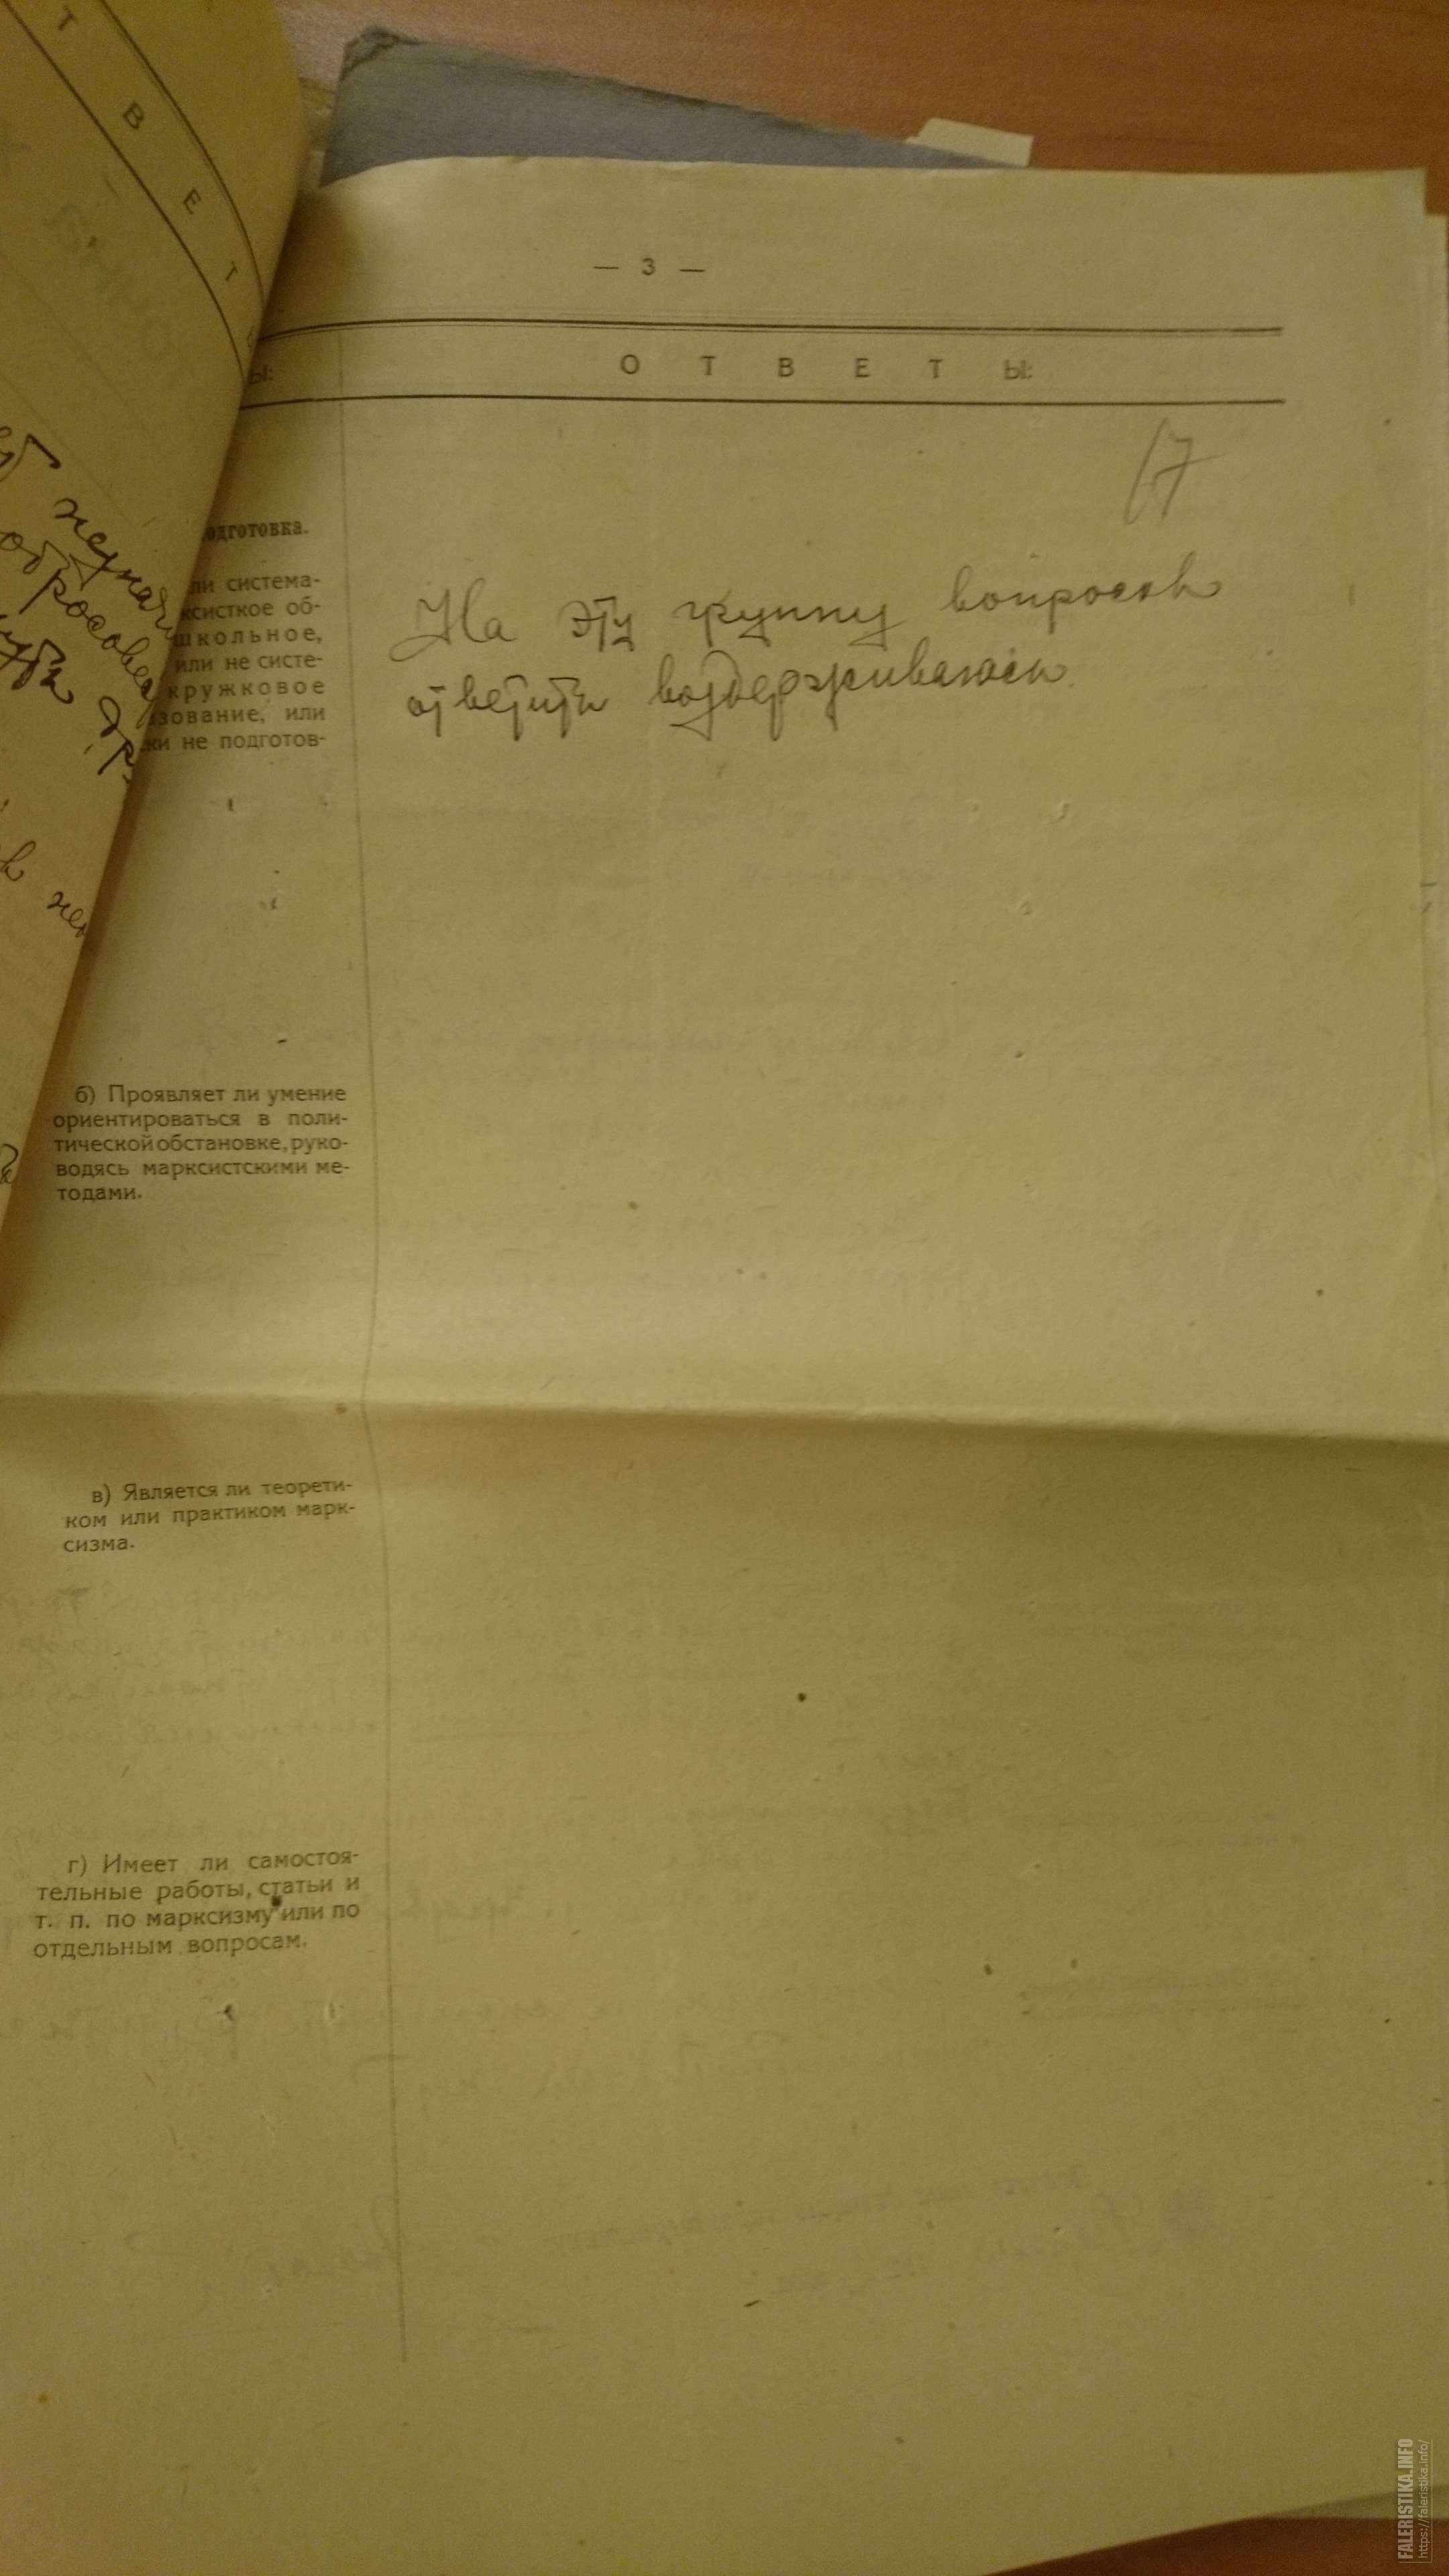 Т В Е Т
— 3 —
Ы: О Т В Е Т Ы:
17
одготовка.
ли система-
ксисткое об-
школьное,
или не систе-
кружковое
зование, или
ки не подготов-
На эту группу вопросов
ответить воздерживаюсь
б) Проявляет ли умение
ориентироваться в поли-
тической обстановке, руко-
водясь марксистскими ме-
тодами.
в) Является ли теорети-
ком или практиком марк-
сизма.
г) Имеет ли самостоя-
тельные работы, статьи и
т. п. по марксизму или по
отдельным вопросам.
FALERISTIKA.INFO
https://faleristika.info/